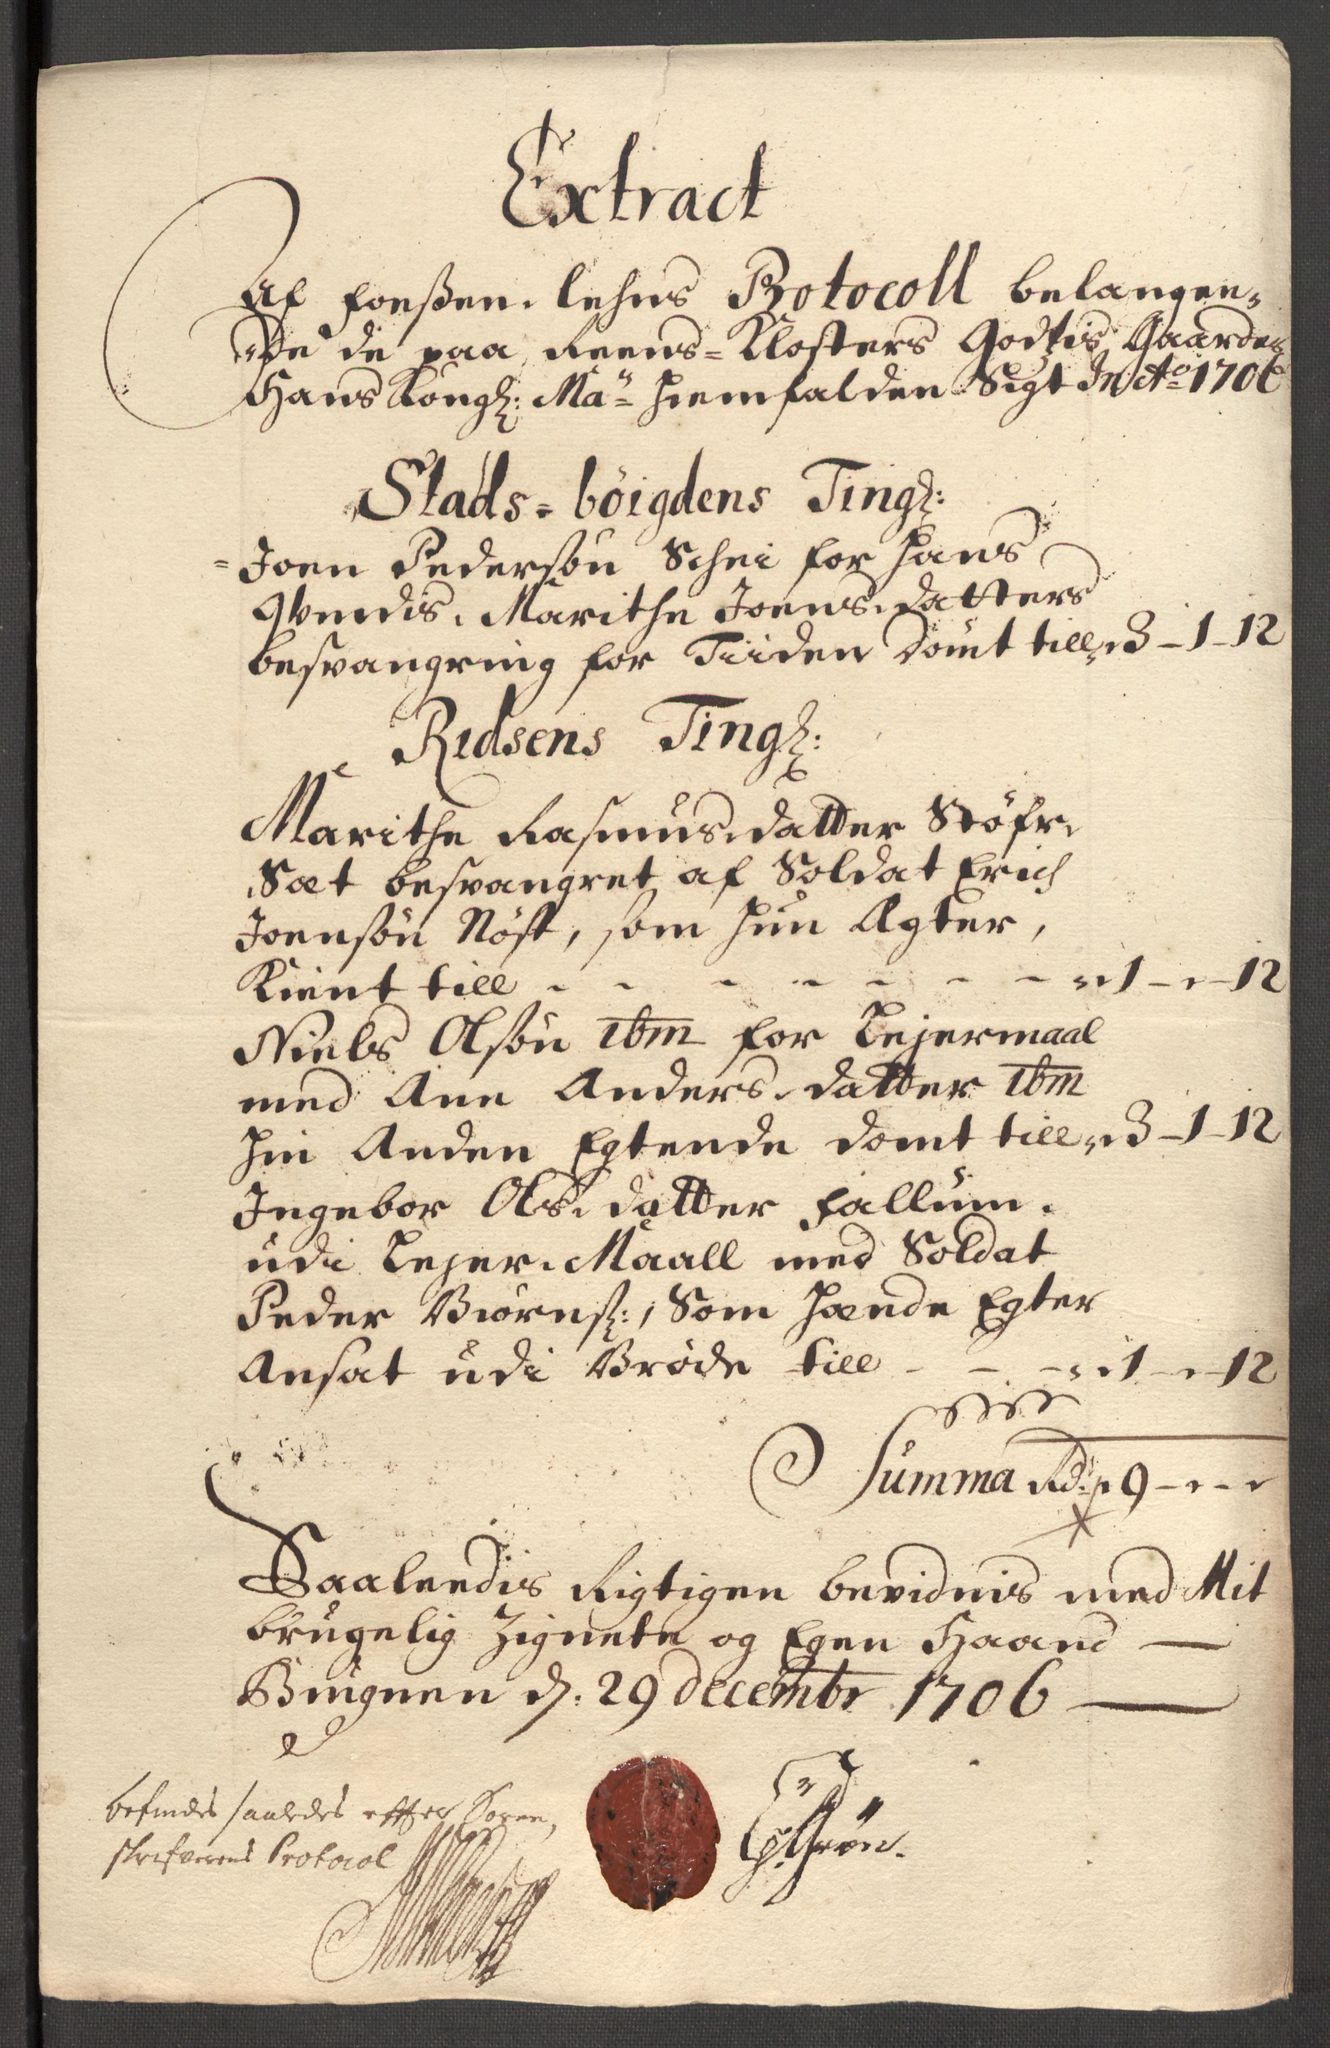 Extract
Af foeßen lehns Protocoll belangen-
de de paa Reens-Klosters Godtzis Gaarder
Hans Kongl: Maÿ: hiemfalden Sigt de Ao 1706
Stads-bóigdens Tingl:
Joen Pedersøn Schei for hans
qvindis, Marithe Joens datters
besvangring for Tiiden dómt till 3 - 1 - 12
Ridsens Tingl:
Marithe Rasmus datter Støfr
Sæt besvangret af Soldat Erich
Joensøn Nøst, som hun Ægter,
Kient till - - - - - - - 1 - " - 12
Niels Olsøn ibm for Lejermaal
med Ane Anders datter ibm
hin Anden Egtende domt till 3 - 1 - 12
Ingebor Ols datter fallúm
udi Lejer Maall med Soldat
Peder Biørns: , Som hænde Egter
Ansat udi Brøde till - - - 1 - " - 12
Summa Rdr 9 - " - "
Saaleedis Rigtigen bevidnis med Mit
brúgelig Zignete og Egen Haand
Biúgnen d: 29 decembr 1706
befindes saaledes effter Soren,
skrifverens Protocol